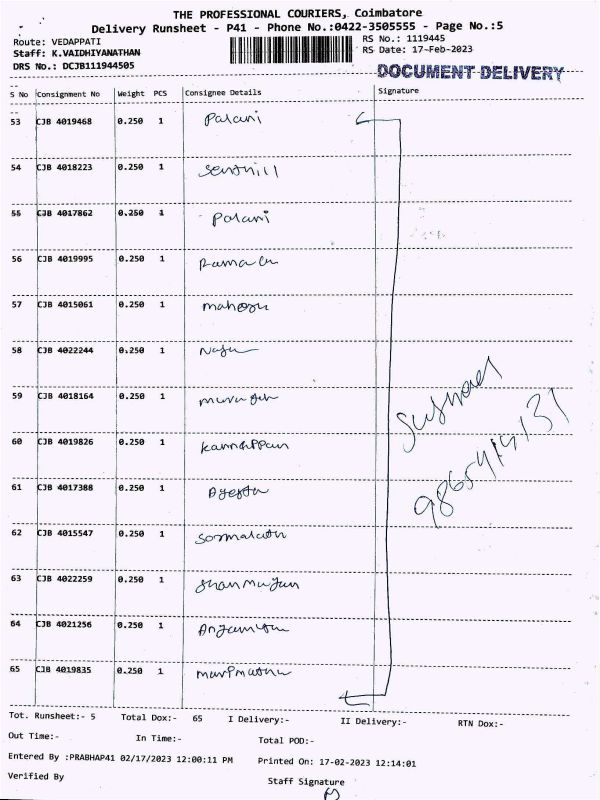 THE PROFESSIONAL COURIERS, Coimbatore
Delivery Runsheet - P41 - Phone No.:0422-3505555 - Page No.:5
Route: VEDAPPATI RS No.: 1119445
Staff: K.VAIDHIYANATHAN RS Date: 17-Feb-2023
DRS No.: DCJB111944505 DOCUMENT DELIVERY
S No Consignment No Weight PCS Consignee Details Signature
53 CJB 4019468 0.250 1 Palani
54 CJB 4018223 0.250 1 Senthill
55 CJB 4017862 0.250 1 Palani
56 CJB 4019995 0.250 1
57 CJB 4015061 0.250 1
58 CJB 4022244 0.250 1
59 CJB 4018164 0.250 1
60 CJB 4019826 0.250 1 Kannappan
61 CJB 4017388 0.250 1
62 CJB 4015547 0.250 1
63 CJB 4022259 0.250 1
64 CJB 4021256 0.250 1
65 CJB 4019835 0.250 1
Tot. Runsheet:- 5 Total Dox:- 65 I Delivery:- II Delivery:- RTN Dox:-
Out Time:- In Time:- Total POD:-
Entered By :PRABHAP41 02/17/2023 12:00:11 PM Printed On: 17-02-2023 12:14:01
Verified By Staff Signature